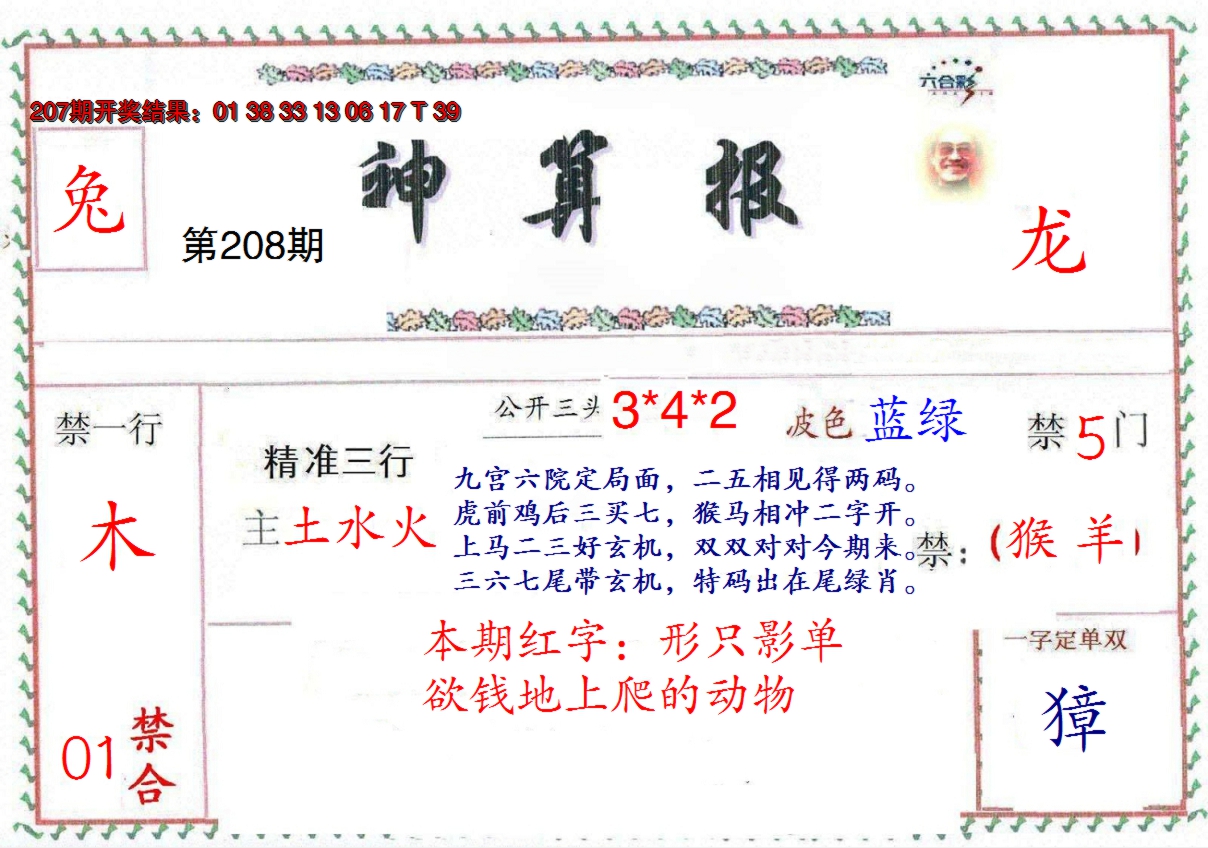 六合彩
207期开奖结果：01 38 33 13 06 17 T 39
神算报
兔
第208期
龙
禁一行
木
01
禁合
公开三头 3*4*2
波色 蓝绿
禁5门
精准三行
主土水火
九宫六院定局面，二五相见得两码。
虎前鸡后三买七，猴马相冲二字开。
上马二三好玄机，双双对对今期来。
三六七尾带玄机，特码出在尾绿肖。
禁：（猴 羊）
本期红字：形只影单
欲钱地上爬的动物
一字定单双
獐